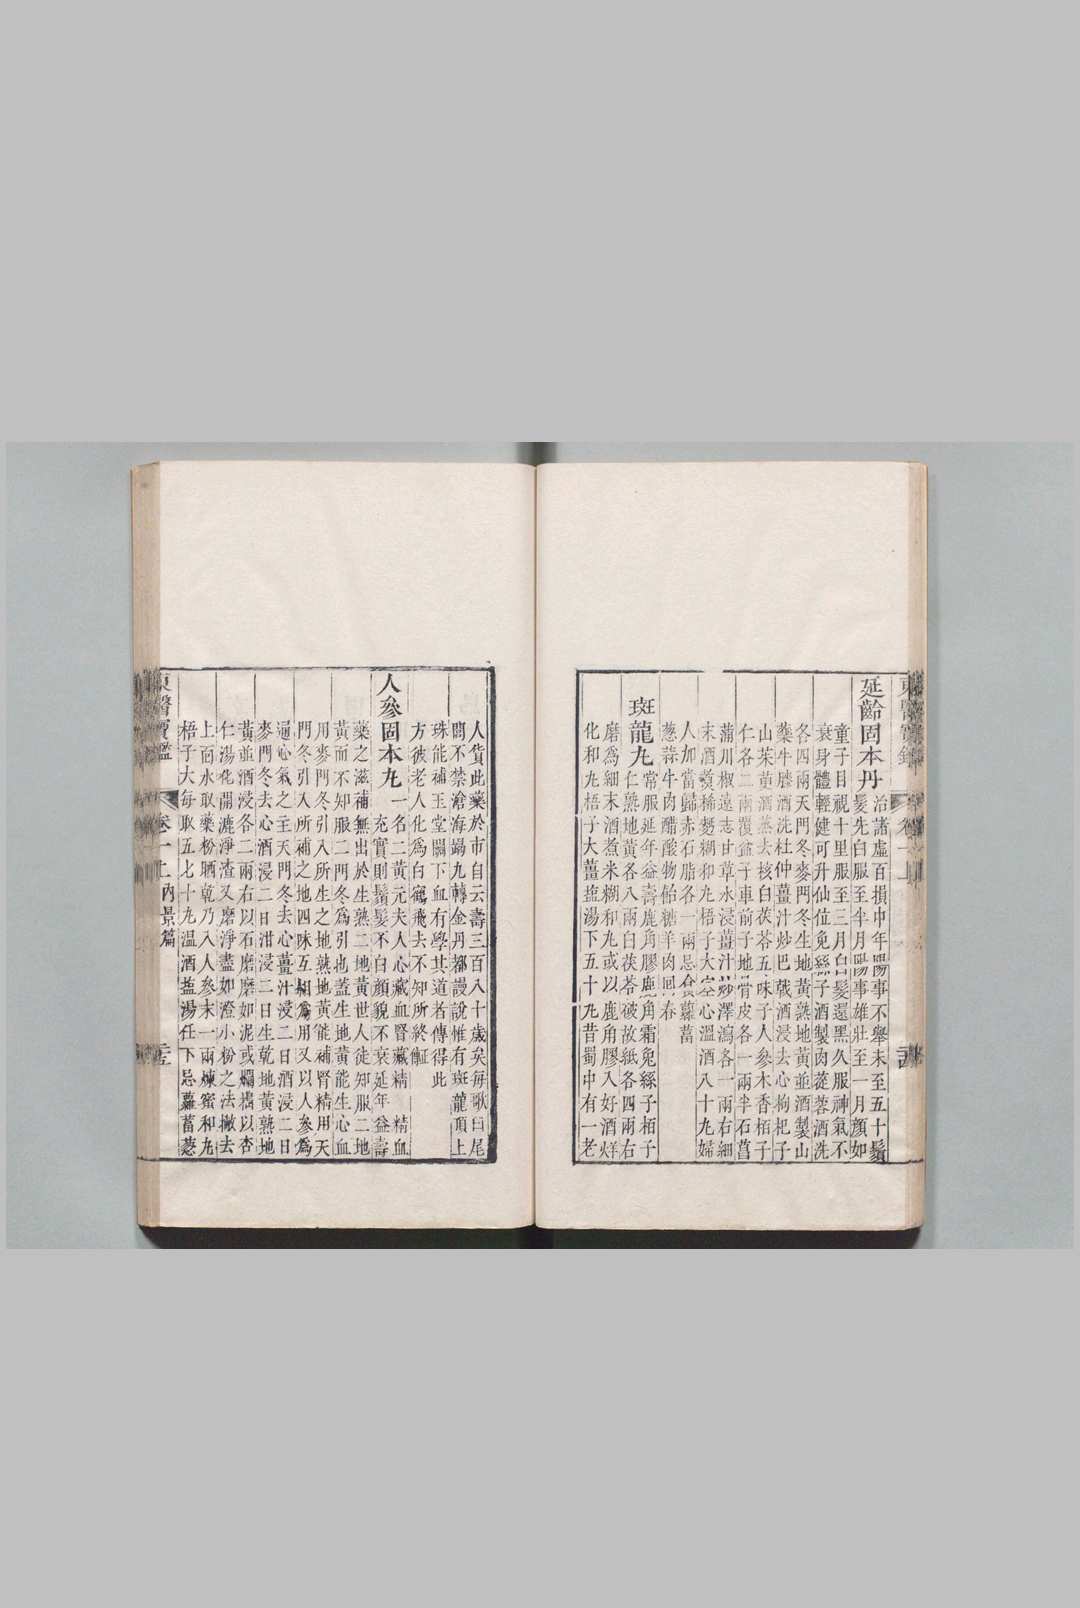 延齡固本丹 治諸虛百損中年陽事不舉未至五十鬚
髮先白服至半月陽事雄壯至一月顏如
童子目視十里服至三月白髮還黑久服神氣不
衰身體輕健可升仙位兔絲子酒製肉蓯蓉酒洗
各四兩天門冬麥門冬生地黃熟地黃並酒製山
藥牛膝酒洗杜仲薑汁炒巴戟酒浸去心枸杞子
山茱萸酒蒸去核白茯苓五味子人參木香栢子
仁各二兩覆盆子車前子地骨皮各一兩半石菖
蒲川椒遠志甘草水浸薑汁炒澤瀉各一兩右細
末酒煮稀麪糊和丸梧子大空心溫酒八十丸婦
人加當歸赤石脂各一兩忌食蘿蔔
葱蒜牛肉醋酸物飴糖羊肉回春
斑龍丸 常服延年益壽鹿角膠鹿角霜兔絲子栢子
仁熟地黃各八兩白茯苓破故紙各四兩右
磨爲細末酒煮米糊和丸或以鹿角膠入好酒烊
化和丸梧子大薑塩湯下五十丸昔蜀中有一老
人貨此藥於市自云壽三百八十歲矣每歌曰尾
閭不禁滄海竭九轉金丹都謾說惟有斑龍頂上
珠能補玉堂關下血有學其道者傳得此
方彼老人化爲白鶴飛去不知所終
人參固本丸 一名二黃元夫人心藏血腎藏精 精血
充實則鬚髮不白顏貌不衰延年益壽
藥之滋補無出於生熟二地黃世人徒知服二地
黃而不知服二門冬爲引也蓋生地黃能生心血
用麥門冬引入所生之地熟地黃能補腎精用天
門冬引入所補之地四味互相爲用又以人參爲
通心氣之主天門冬去心薑汁浸二日酒浸二日
麥門冬去心酒浸二日泔浸三日生乾地黃熟地
黃並酒浸各二兩右以石磨磨如泥或爛擣以杏
仁湯化開漉淨渣又磨淨盡如澄小粉之法撇去
上面水取藥粉晒乾乃入人參末一兩煉蜜和丸
梧子大每取五七十丸溫酒塩湯任下忌蘿蔔葱
東醫寶鑑 卷一上 內景篇